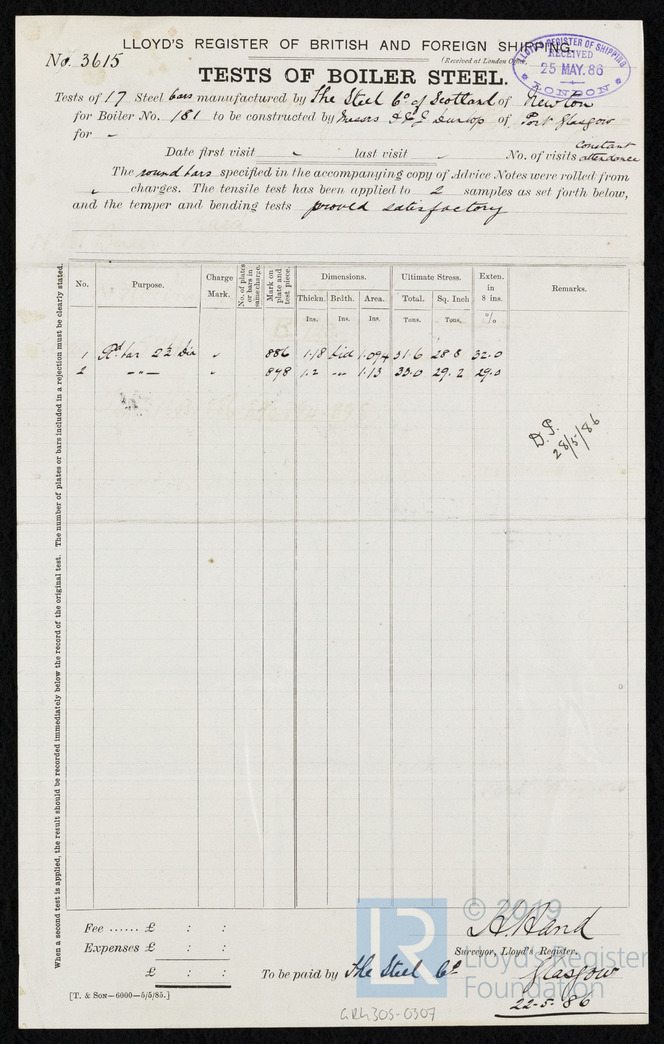 LLOYD'S REGISTER OF BRITISH AND FOREIGN SHIPPING.
No. 3615
(Received at London Office,
LLOYD'S REGISTER OF SHIPPING
RECEIVED
25 MAY. 86
LONDON
TESTS OF BOILER STEEL.
Tests of 17 Steel bars manufactured by The Steel Co of Scotland of Newton
for Boiler No. 181 to be constructed by Messrs D. & J. Dunlop of Port Glasgow
for -
Date first visit last visit No. of visits Constant attendance
The round bars specified in the accompanying copy of Advice Notes were rolled from
charges. The tensile test has been applied to 2 samples as set forth below,
and the temper and bending tests proved satisfactory
No. Purpose. Charge Mark. No. of plates or bars in same charge. Mark on plate and test piece. Dimensions. Ultimate Stress. Exten. in 8 ins. Remarks.
Thickn. Brdth. Area. Total. Sq. Inch
Ins. Ins. Ins. Tons. Tons. %
1 Rd bar 2½ Dia " 886 1.18 dia 1.094 31.6 28.8 32.0
2 -"- " 898 1.2 -"- 1.13 33.0 29.2 29.0
D.P.
28/5/86
When a second test is applied, the result should be recorded immediately below the record of the original test. The number of plates or bars included in a rejection must be clearly stated.
Fee ...... £ : :
Expenses £ : :
£ : :
To be paid by The Steel Co.
[T. & SON—6000—5/5/85.]
H. Hand
Surveyor, Lloyd's Register.
Glasgow
22-5-86
GRK305-0307
© 2019
LR
Lloyd's Register
Foundation